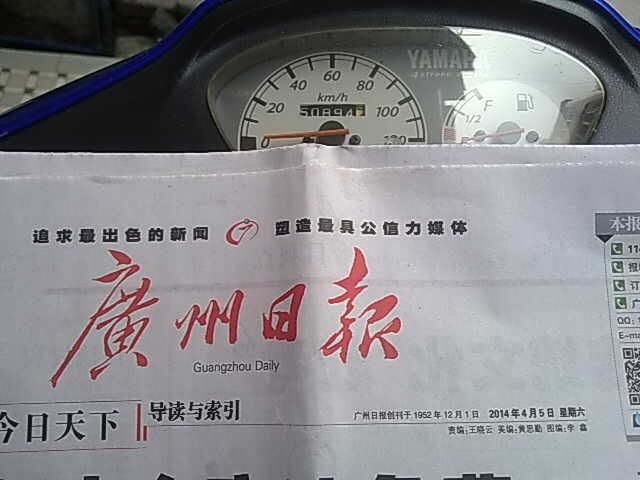 YAMAHA
4 stroke
60
40
80
km/h
20
100
0
120
F
1/2
追求最出色的新闻 塑造最具公信力媒体
廣州日報
Guangzhou Daily
本报
11
报
订
广
QQ:
E-ma
今日天下 导读与索引
广州日报创刊于1952年12月1日 2014年4月5日 星期六
责编:王晓云 美编:黄思勤 图编:李鑫